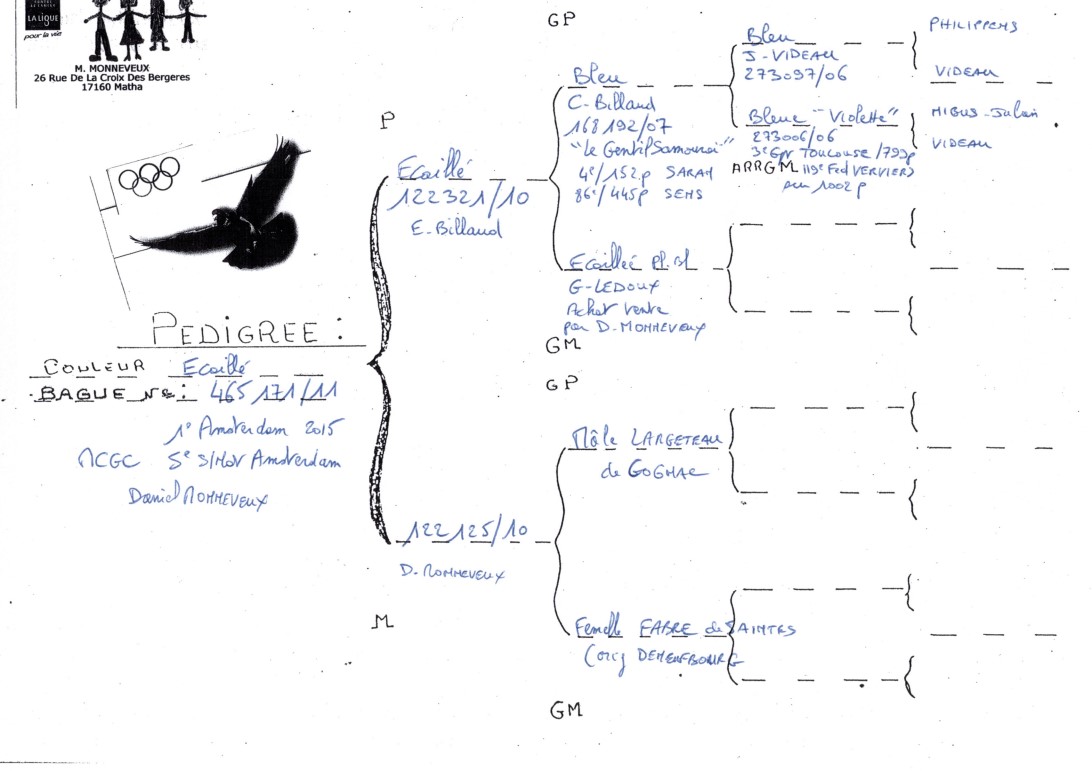 LA LIGUE
pour la vie
M. MONNEVEUX
26 Rue De La Croix Des Bergeres
17160 Matha
PEDIGREE :
COULEUR Ecaillé
BAGUE No : 465 171/11
1e Amsterdam 2015
ACGC 5e S/Nov Amsterdam
Daniel MONNEVEUX
P
Ecaillé
122321/10
E. Billaud
M
122125/10
D. MONNEVEUX
GP
Bleu
C. Billaud
168192/07
"Le Gentil Samouraï"
4e/152p SARAN
86e/445p SENS
Ecaillée Pl. Bl
G. LEDOUX
Achat vente
par D. MONNEVEUX
GM
GP
Mâle LARGETEAU
de COGNAC
Femelle FABRE de SAINTES
GM
Bleu
J. VIDEAU
273097/06
Bleue "Violette"
273006/06
3e Gpr Toulouse/799p
ARRGM 119e Fed VERVIERS
sur 1002p
PHILIPPENS
VIDEAU
VIDEAU